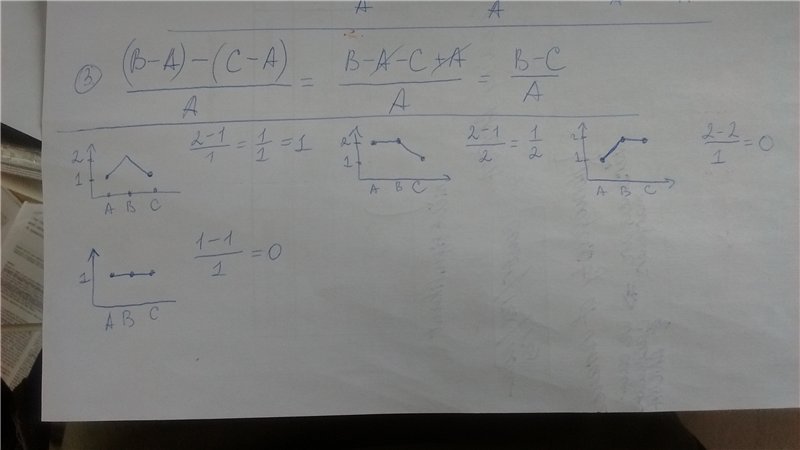 A A A
③ ((B-A)-(C-A))/A = (B-A-C+A)/A = (B-C)/A
2 1 A B C (2-1)/1 = 1/1 = 1 2 1 A B C (2-1)/2 = 1/2 2 1 A B C (2-2)/1 = 0
1 A B C (1-1)/1 = 0